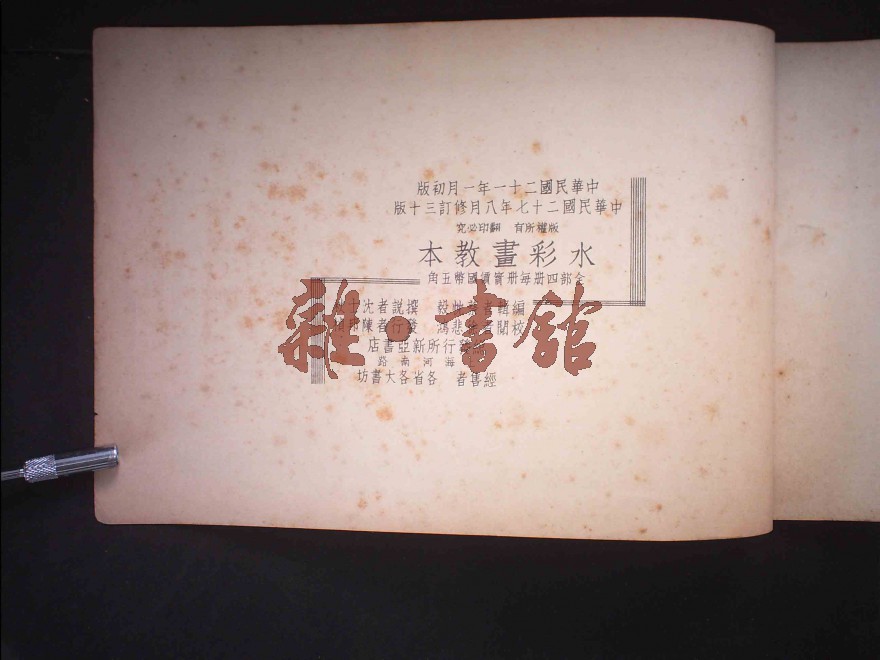 中華民國二十一年一月初版
中華民國二十七年八月修訂三十版
版權所有 翻印必究
水彩畫教本
全部四册每册實價國幣五角
編輯者 撰說者沈士
校閱者 悲鴻 發行者陳
發行所新亞書店
海河南路
經售者 各省各大書坊
雜·書館